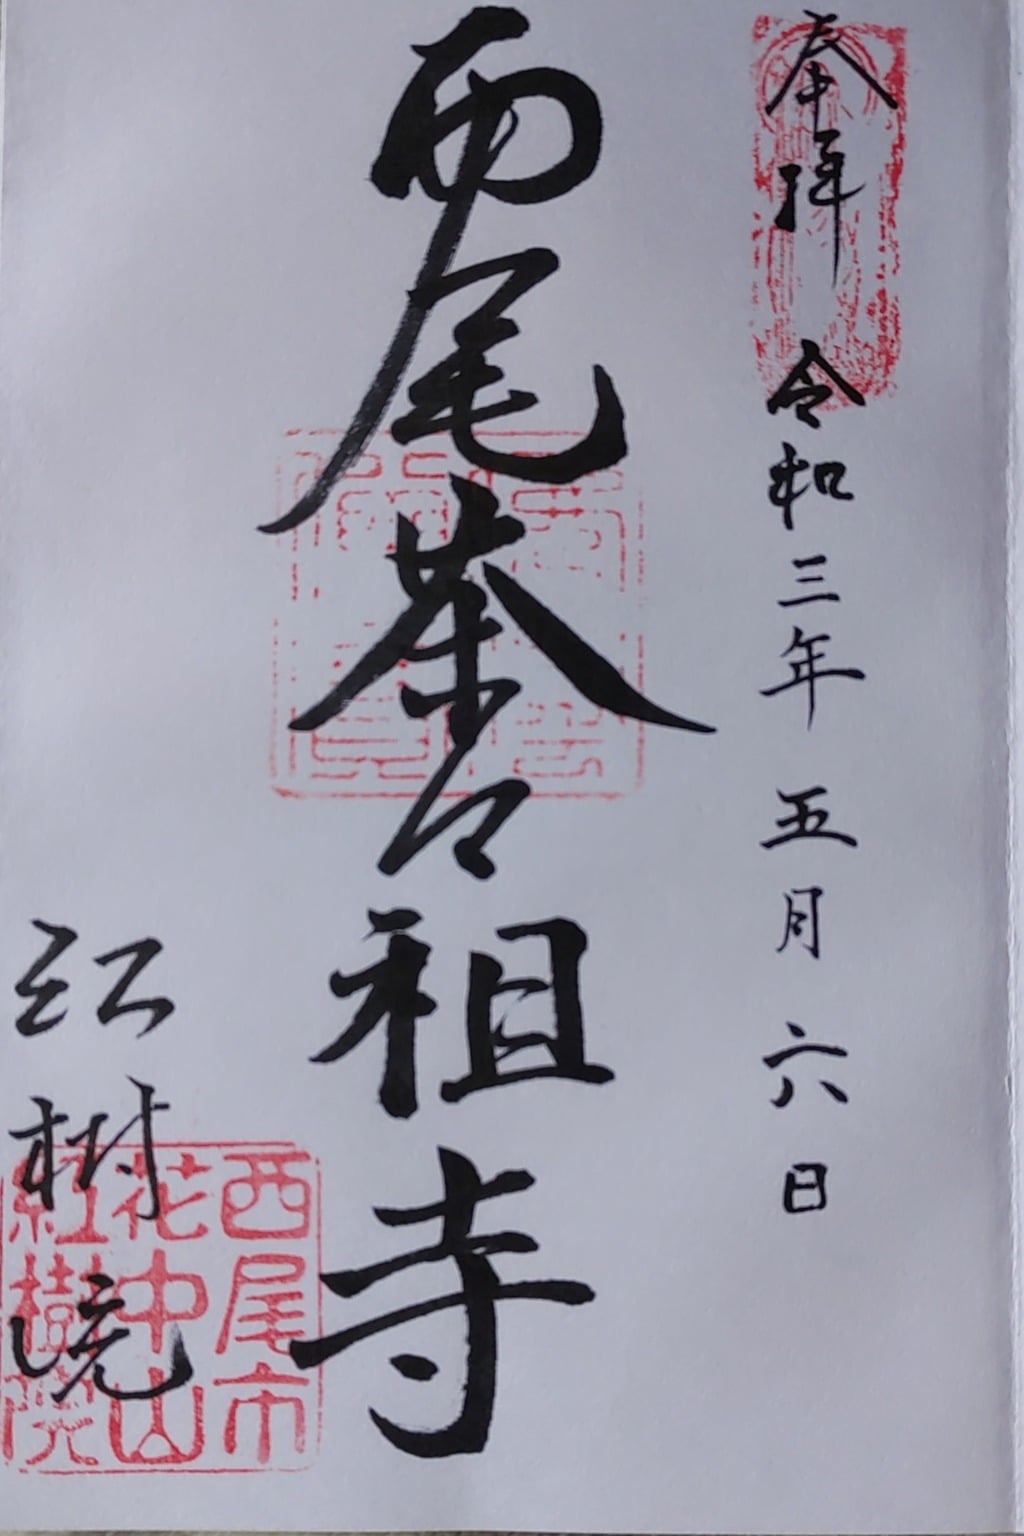 奉拝 令和三年 五月 六日
西尾茶之祖寺
紅樹院
西尾市
花中山
紅樹院